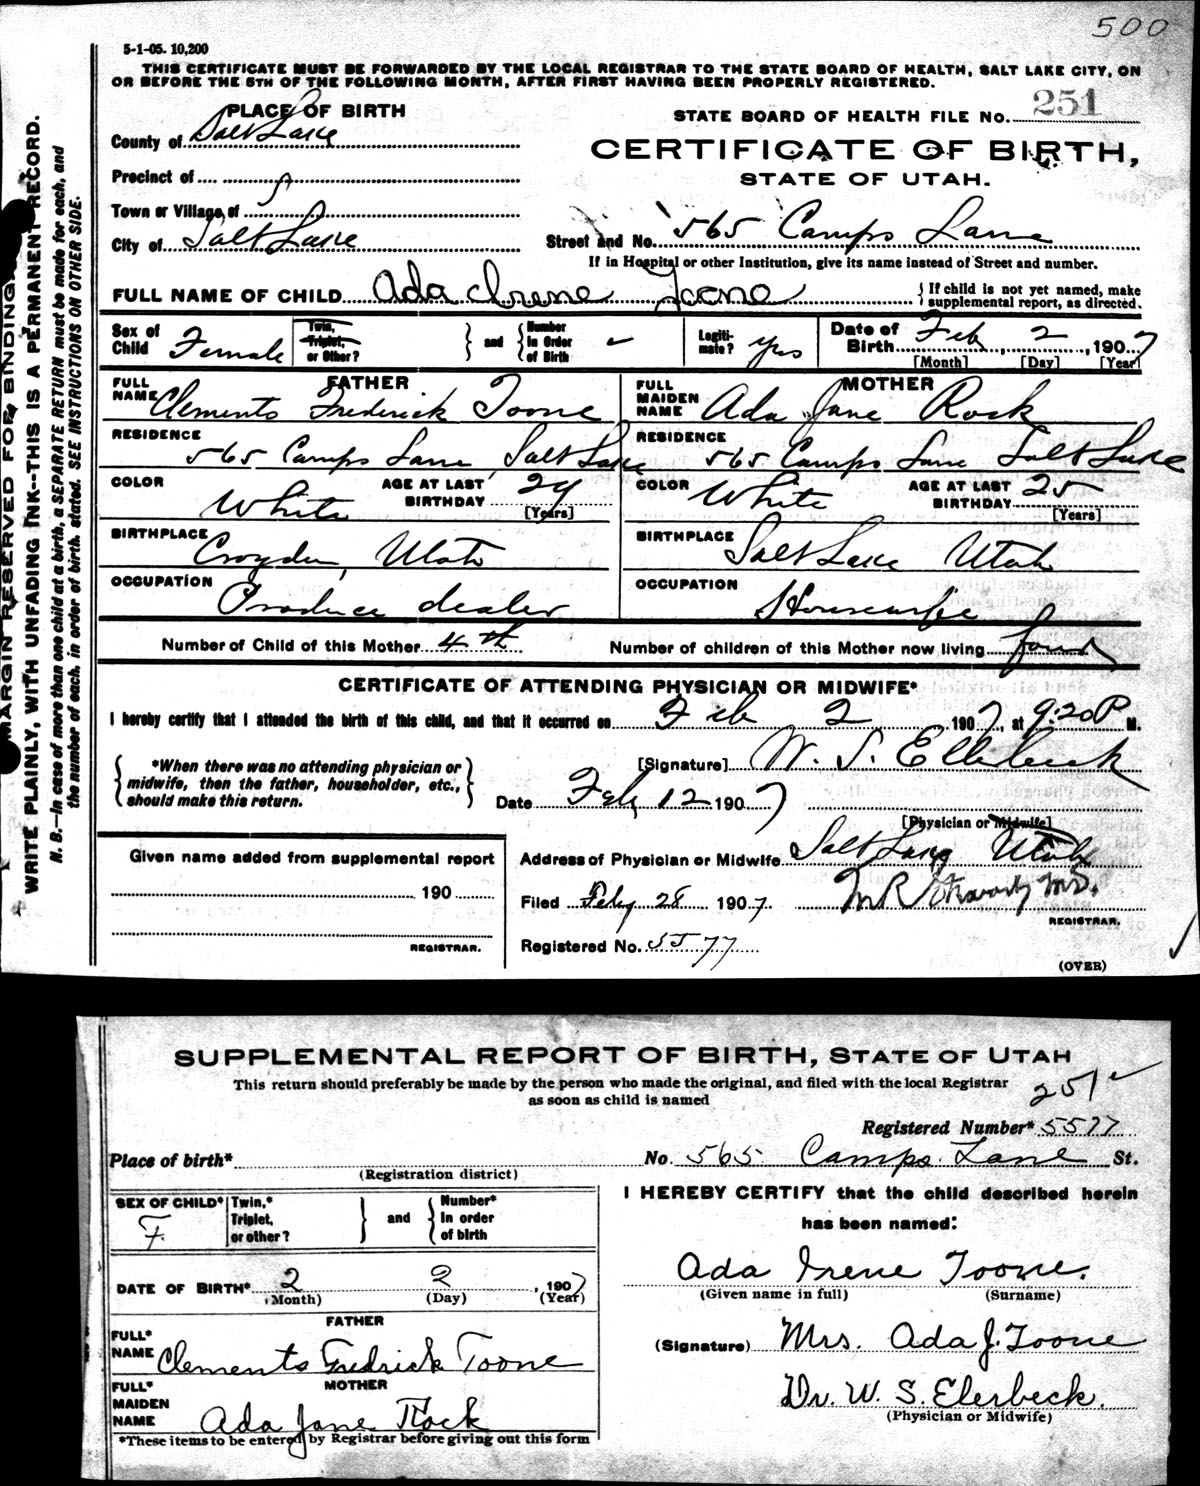 500
5-1-05. 10,200
THIS CERTIFICATE MUST BE FORWARDED BY THE LOCAL REGISTRAR TO THE STATE BOARD OF HEALTH, SALT LAKE CITY, ON
OR BEFORE THE 5TH OF THE FOLLOWING MONTH, AFTER FIRST HAVING BEEN PROPERLY REGISTERED.
PLACE OF BIRTH
County of Salt Lake
Precinct of
Town or Village of
City of Salt Lake
STATE BOARD OF HEALTH FILE NO. 251
CERTIFICATE OF BIRTH,
STATE OF UTAH.
Street and No. 565 Camps Lane
If in Hospital or other Institution, give its name instead of Street and number.
FULL NAME OF CHILD Ada Irene Toone
If child is not yet named, make
supplemental report, as directed.
Sex of Child Female
Twin, Triplet, or Other?
and
Number In Order of Birth
Legitimate? Yes
Date of Birth Feb 2, 1907
[Month] [Day] [Year]
FATHER
FULL NAME Clements Frederick Toone
RESIDENCE 565 Camps Lane Salt Lake
COLOR White
AGE AT LAST BIRTHDAY 29 [Years]
BIRTHPLACE Croyden, Utah
OCCUPATION Produce dealer
MOTHER
FULL MAIDEN NAME Ada Jane Rock
RESIDENCE 565 Camps Lane Salt Lake
COLOR White
AGE AT LAST BIRTHDAY 25 [Years]
BIRTHPLACE Salt Lake Utah
OCCUPATION Housewife
Number of Child of this Mother 4th
Number of children of this Mother now living four
CERTIFICATE OF ATTENDING PHYSICIAN OR MIDWIFE*
I hereby certify that I attended the birth of this child, and that it occurred on Feb 2 1907, at 9:20 P M.
*When there was no attending physician or
midwife, then the father, householder, etc.,
should make this return.
[Signature] W. S. Ellerbeck
Date Feby 12 1907
[Physician or Midwife]
Given name added from supplemental report
190
REGISTRAR.
Address of Physician or Midwife Salt Lake Utah
Filed Feby 28 1907
M.D.
REGISTRAR.
Registered No. 5577
(OVER)
MARGIN RESERVED FOR BINDING.
WRITE PLAINLY, WITH UNFADING INK--THIS IS A PERMANENT RECORD.
N. B.--In case of more than one child at a birth, a SEPARATE RETURN must be made for each, and
the number of each, in order of birth, stated. SEE INSTRUCTIONS ON OTHER SIDE.
SUPPLEMENTAL REPORT OF BIRTH, STATE OF UTAH
This return should preferably be made by the person who made the original, and filed with the local Registrar
as soon as child is named
251
Registered Number* 5577
Place of birth*
(Registration district)
No. 565 Camps Lane St.
SEX OF CHILD* F.
Twin,* Triplet, or other?
and
Number* In order of birth
DATE OF BIRTH* 2 2, 1907
(Month) (Day) (Year)
FATHER
FULL* NAME Clements Fredrick Toone
MOTHER
FULL* MAIDEN NAME Ada Jane Rock
*These items to be entered by Registrar before giving out this form
I HEREBY CERTIFY that the child described herein
has been named:
Ada Irene Toone.
(Given name in full) (Surname)
(Signature) Mrs. Ada J. Toone
Dr. W. S. Elerbeck.
(Physician or Midwife)